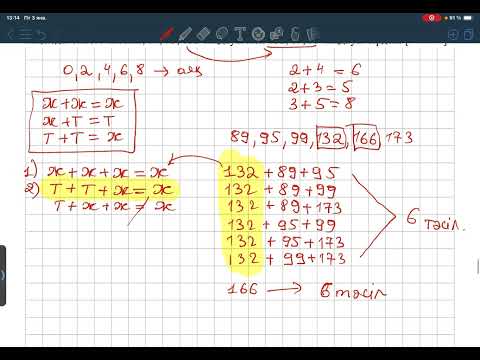 13:14 Пт 3 янв.
91 %
0, 2, 4, 6, 8 →
2 + 4 = 6
2 + 3 = 5
3 + 5 = 8
ж + ж = ж
ж + т = т
т + т = ж
89, 95, 99, 132, 166, 173
1) ж + ж + ж = ж
2) т + т + ж = ж
т + ж + ж = ж
132 + 89 + 95
132 + 89 + 99
132 + 89 + 173
132 + 95 + 99
132 + 95 + 173
132 + 99 + 173
6 тәсіл.
166 → 6 тәсіл